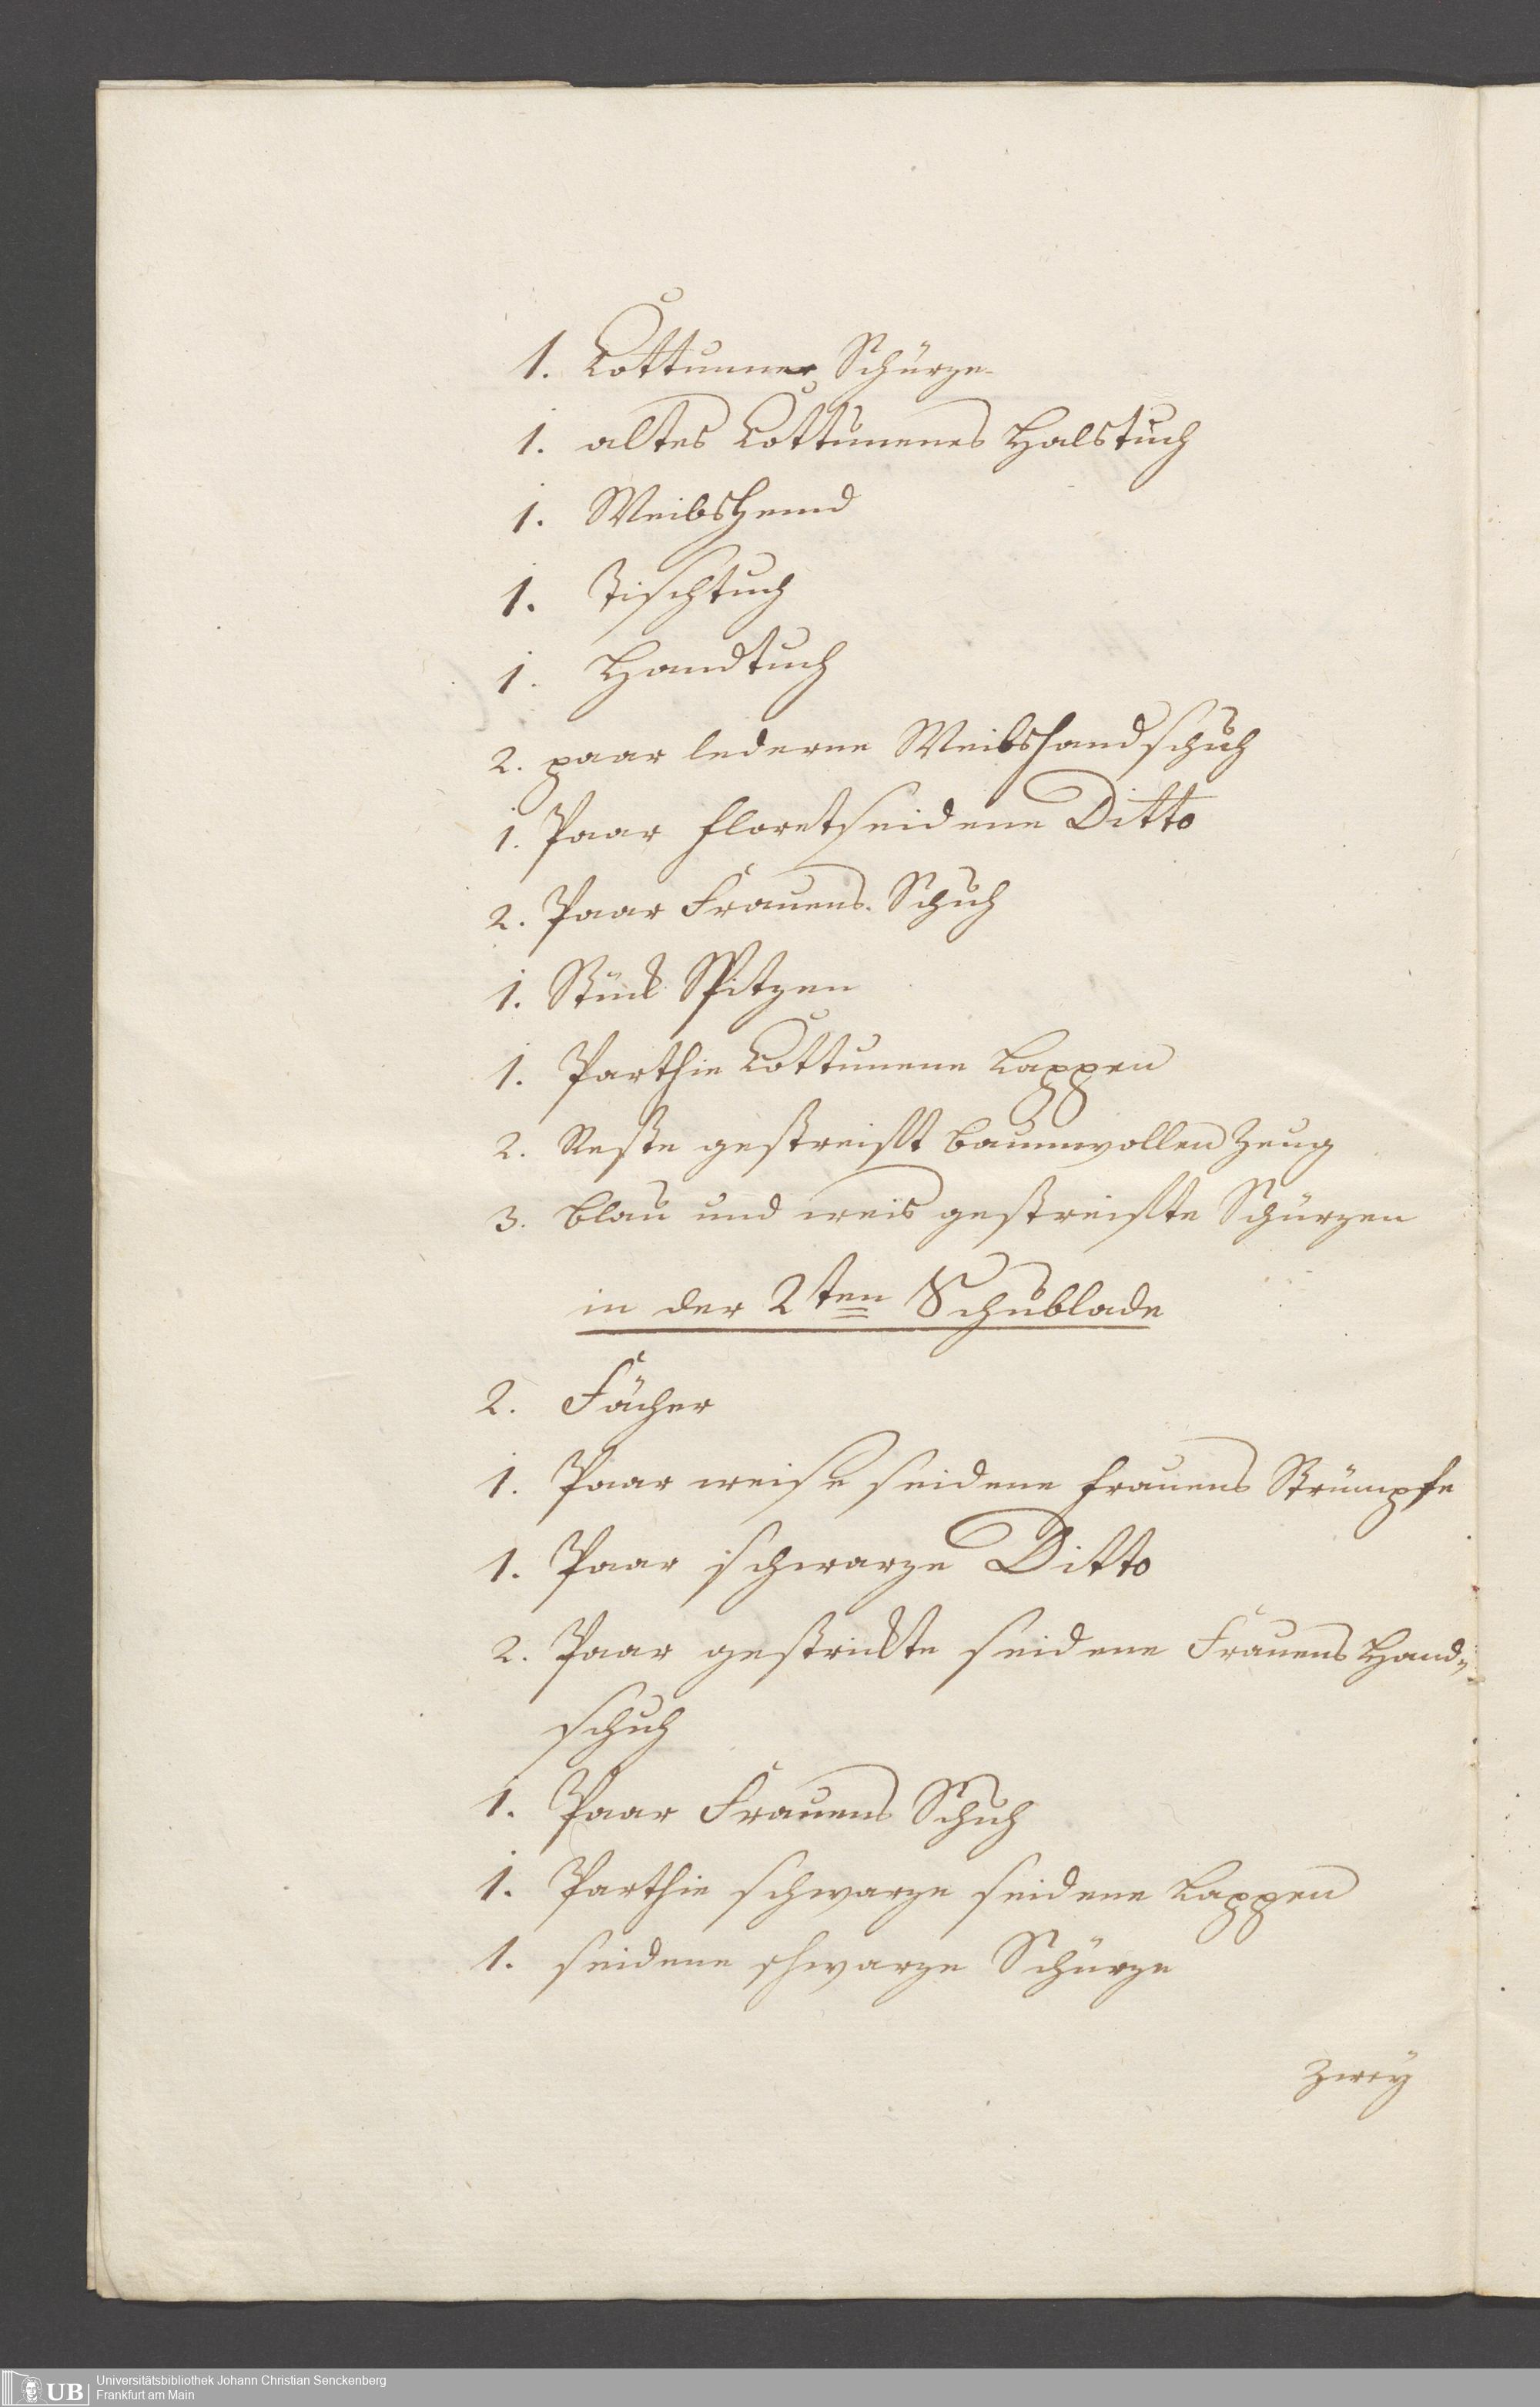 1. Cottunner Schürze
1. altes Cottunenes Halstuch
1. Weibshemd
1. Tischtuch
1. Handtuch
2. paar lederne Weibshandschuh
1. Paar floretseidene Ditto
2. Paar Frauens Schuh
1. Stück Spitzen
1. Parthie Cottunene Lappen
2. Reste gestreift baumwollen Zeug
3. blau und weis gestreifte Schürzen
in der 2ten Schublade
2. Fächer
1. Paar weise seidene frauens Strümpfe
1. Paar schwarze Ditto
2. Paar gestrickte seidene Frauens Hand-
schuh
1. Paar Frauens Schuh
1. Parthie schwarze seidene Lappen
1. seidene schwarze Schürze
Zwey
UB Universitätsbibliothek Johann Christian Senckenberg
Frankfurt am Main